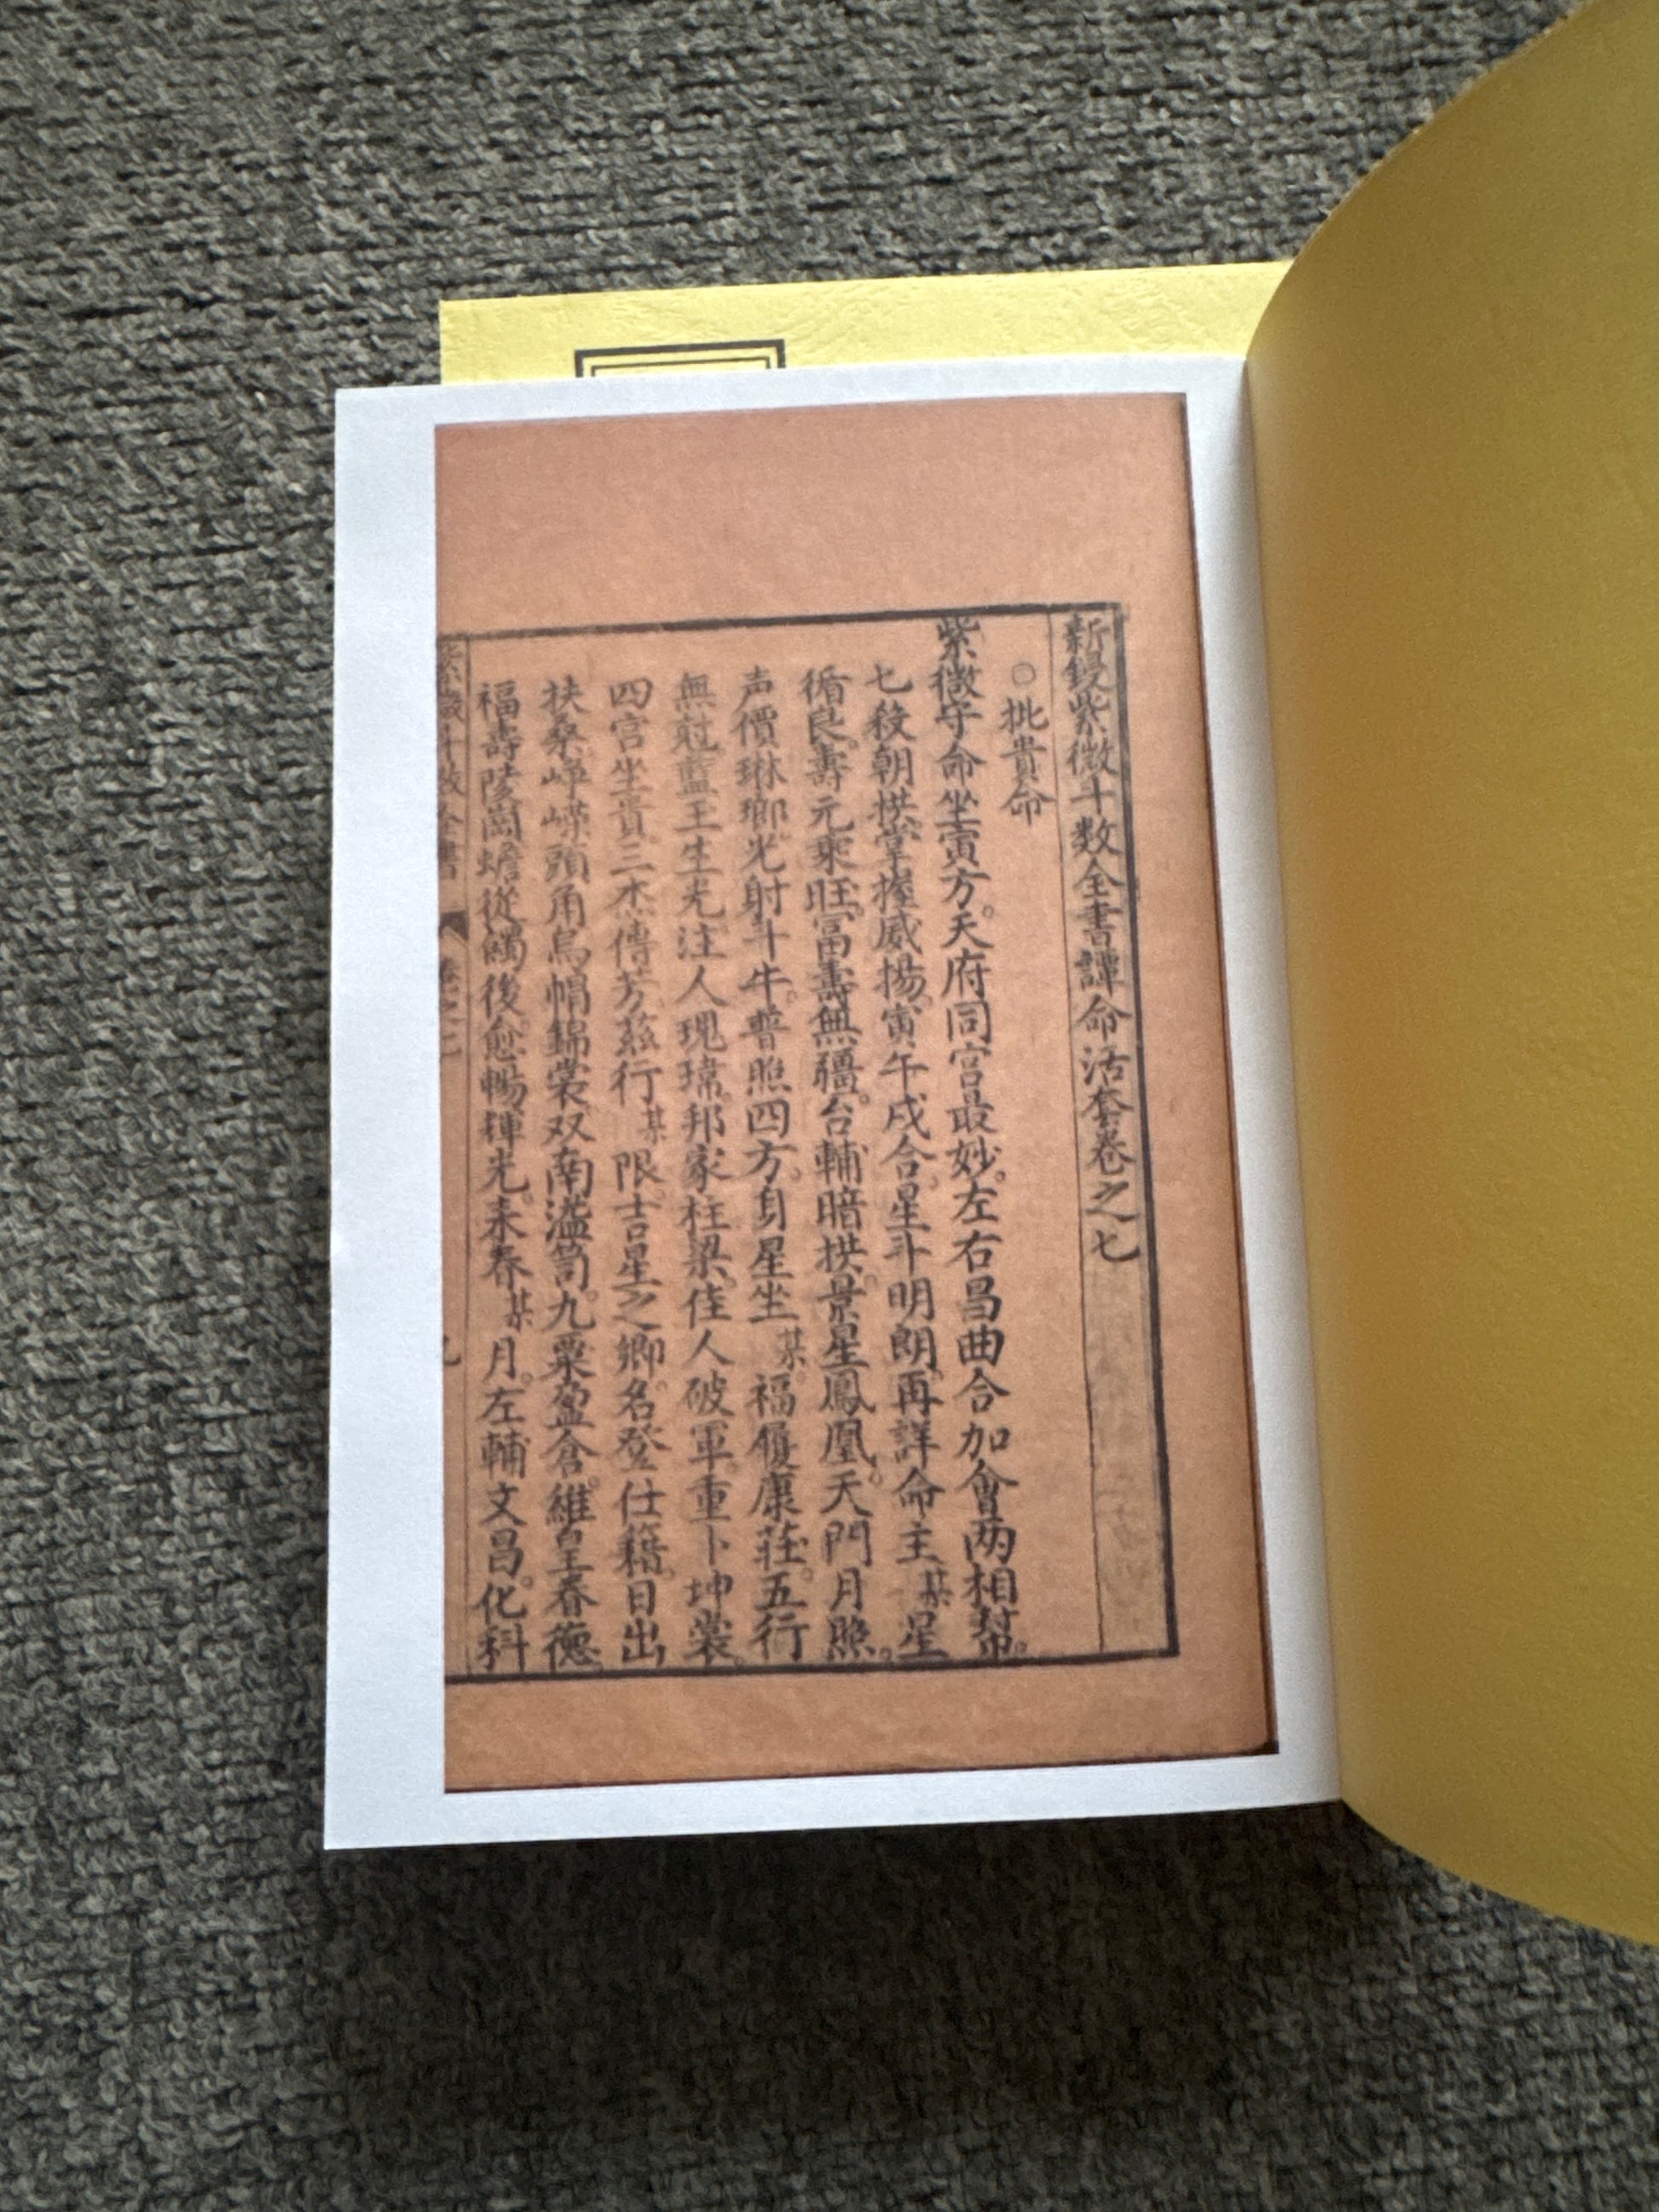 新鋟紫微斗数全書譚命活套卷之七
○批貴命
紫微守命坐寅方。天府同宮最妙。左右昌曲合加會两相幇。
七殺朝拱。掌握威揚。寅午戌合。星斗明朗。再詳命主某星
循良。壽元乘旺。富壽無疆。台輔暗拱。景星鳳凰。天門月照。
声價琳瑯。光射斗牛。普照四方。身星坐某。福履康莊。五行
無尅。藍玉生光。注人瑰瑋。邦家柱梁。佳人破軍。重卜坤裳。
四宮坐貴。三杰傳芳。茲行某限吉星之鄉。名登仕籍。日出
扶桑。崢嶸頭角。烏帽錦裳。双南溢笥。九粟盈倉。維皇春德。
福壽陵崗。蟾從燭後。愈暢輝光。来春某月。左輔文昌。化科
紫微斗数全書 卷之七